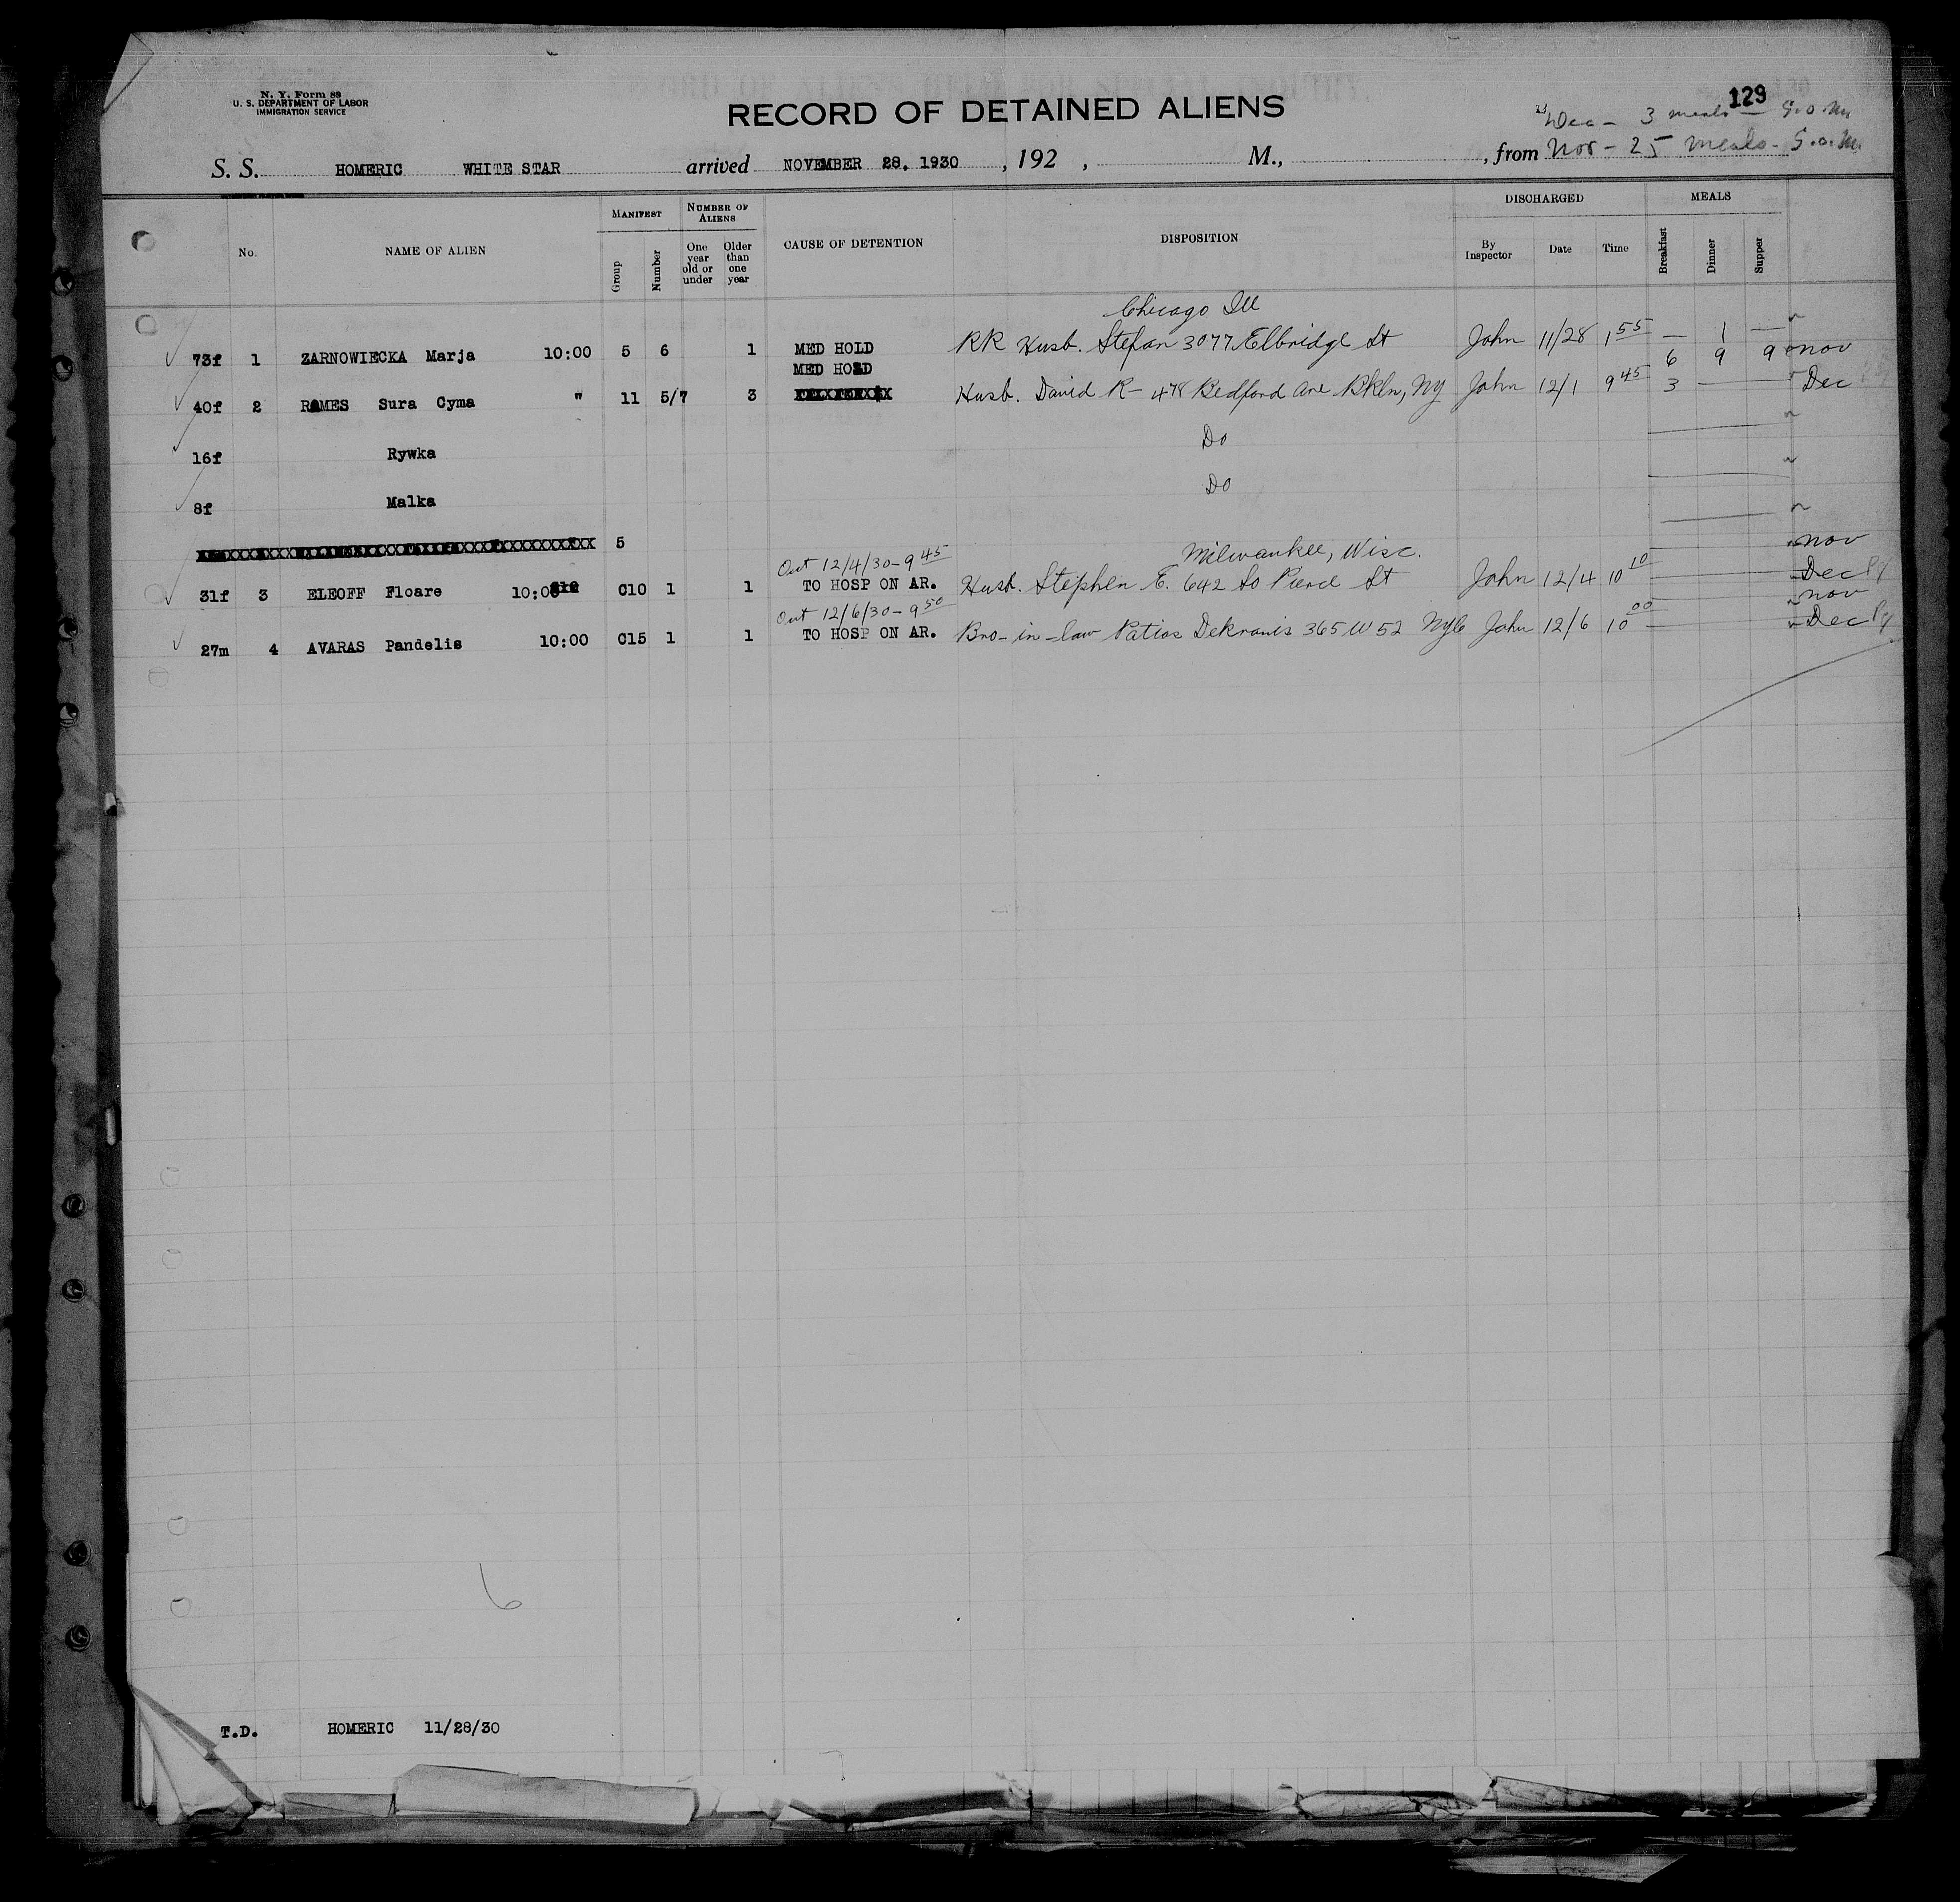 N. Y. Form 89
U. S. DEPARTMENT OF LABOR
IMMIGRATION SERVICE
RECORD OF DETAINED ALIENS
129
Dec - 3 meals - S.O.M.
S. S. HOMERIC WHITE STAR arrived NOVEMBER 28, 1930 , 192 , M., , from Nov - 25 meals - S.O.M.
No. NAME OF ALIEN MANIFEST Group Number NUMBER OF ALIENS One year old or under Older than one year CAUSE OF DETENTION DISPOSITION DISCHARGED By Inspector Date Time MEALS Breakfast Dinner Supper
Chicago Ill
73f 1 ZARNOWIECKA Marja 10:00 5 6 1 MED HOLD RR Husb. Stefan 3077 Elbridge St John 11/28 1 55 — 1 —
MED HOLD 6 9 9 Nov
40f 2 RAMES Sura Cyma " 11 5/7 3 Husb. David R- 478 Bedford Ave Bkln, NY John 12/1 9 45 3 — — Dec
16f Rywka Do
8f Malka Do
5
Out 12/4/30 - 9 45 Milwaukee, Wisc. Nov
31f 3 ELEOFF Floare 10:00 C10 1 1 TO HOSP ON AR. Husb. Stephen E. 642 So Pierce St John 12/4 10 10 Dec
Out 12/6/30 - 9 50 Nov
27m 4 AVARAS Pandelis 10:00 C15 1 1 TO HOSP ON AR. Bro-in-law Patios Dekranis 365 W 52 NYC John 12/6 10 00 Dec
6
T.D. HOMERIC 11/28/30